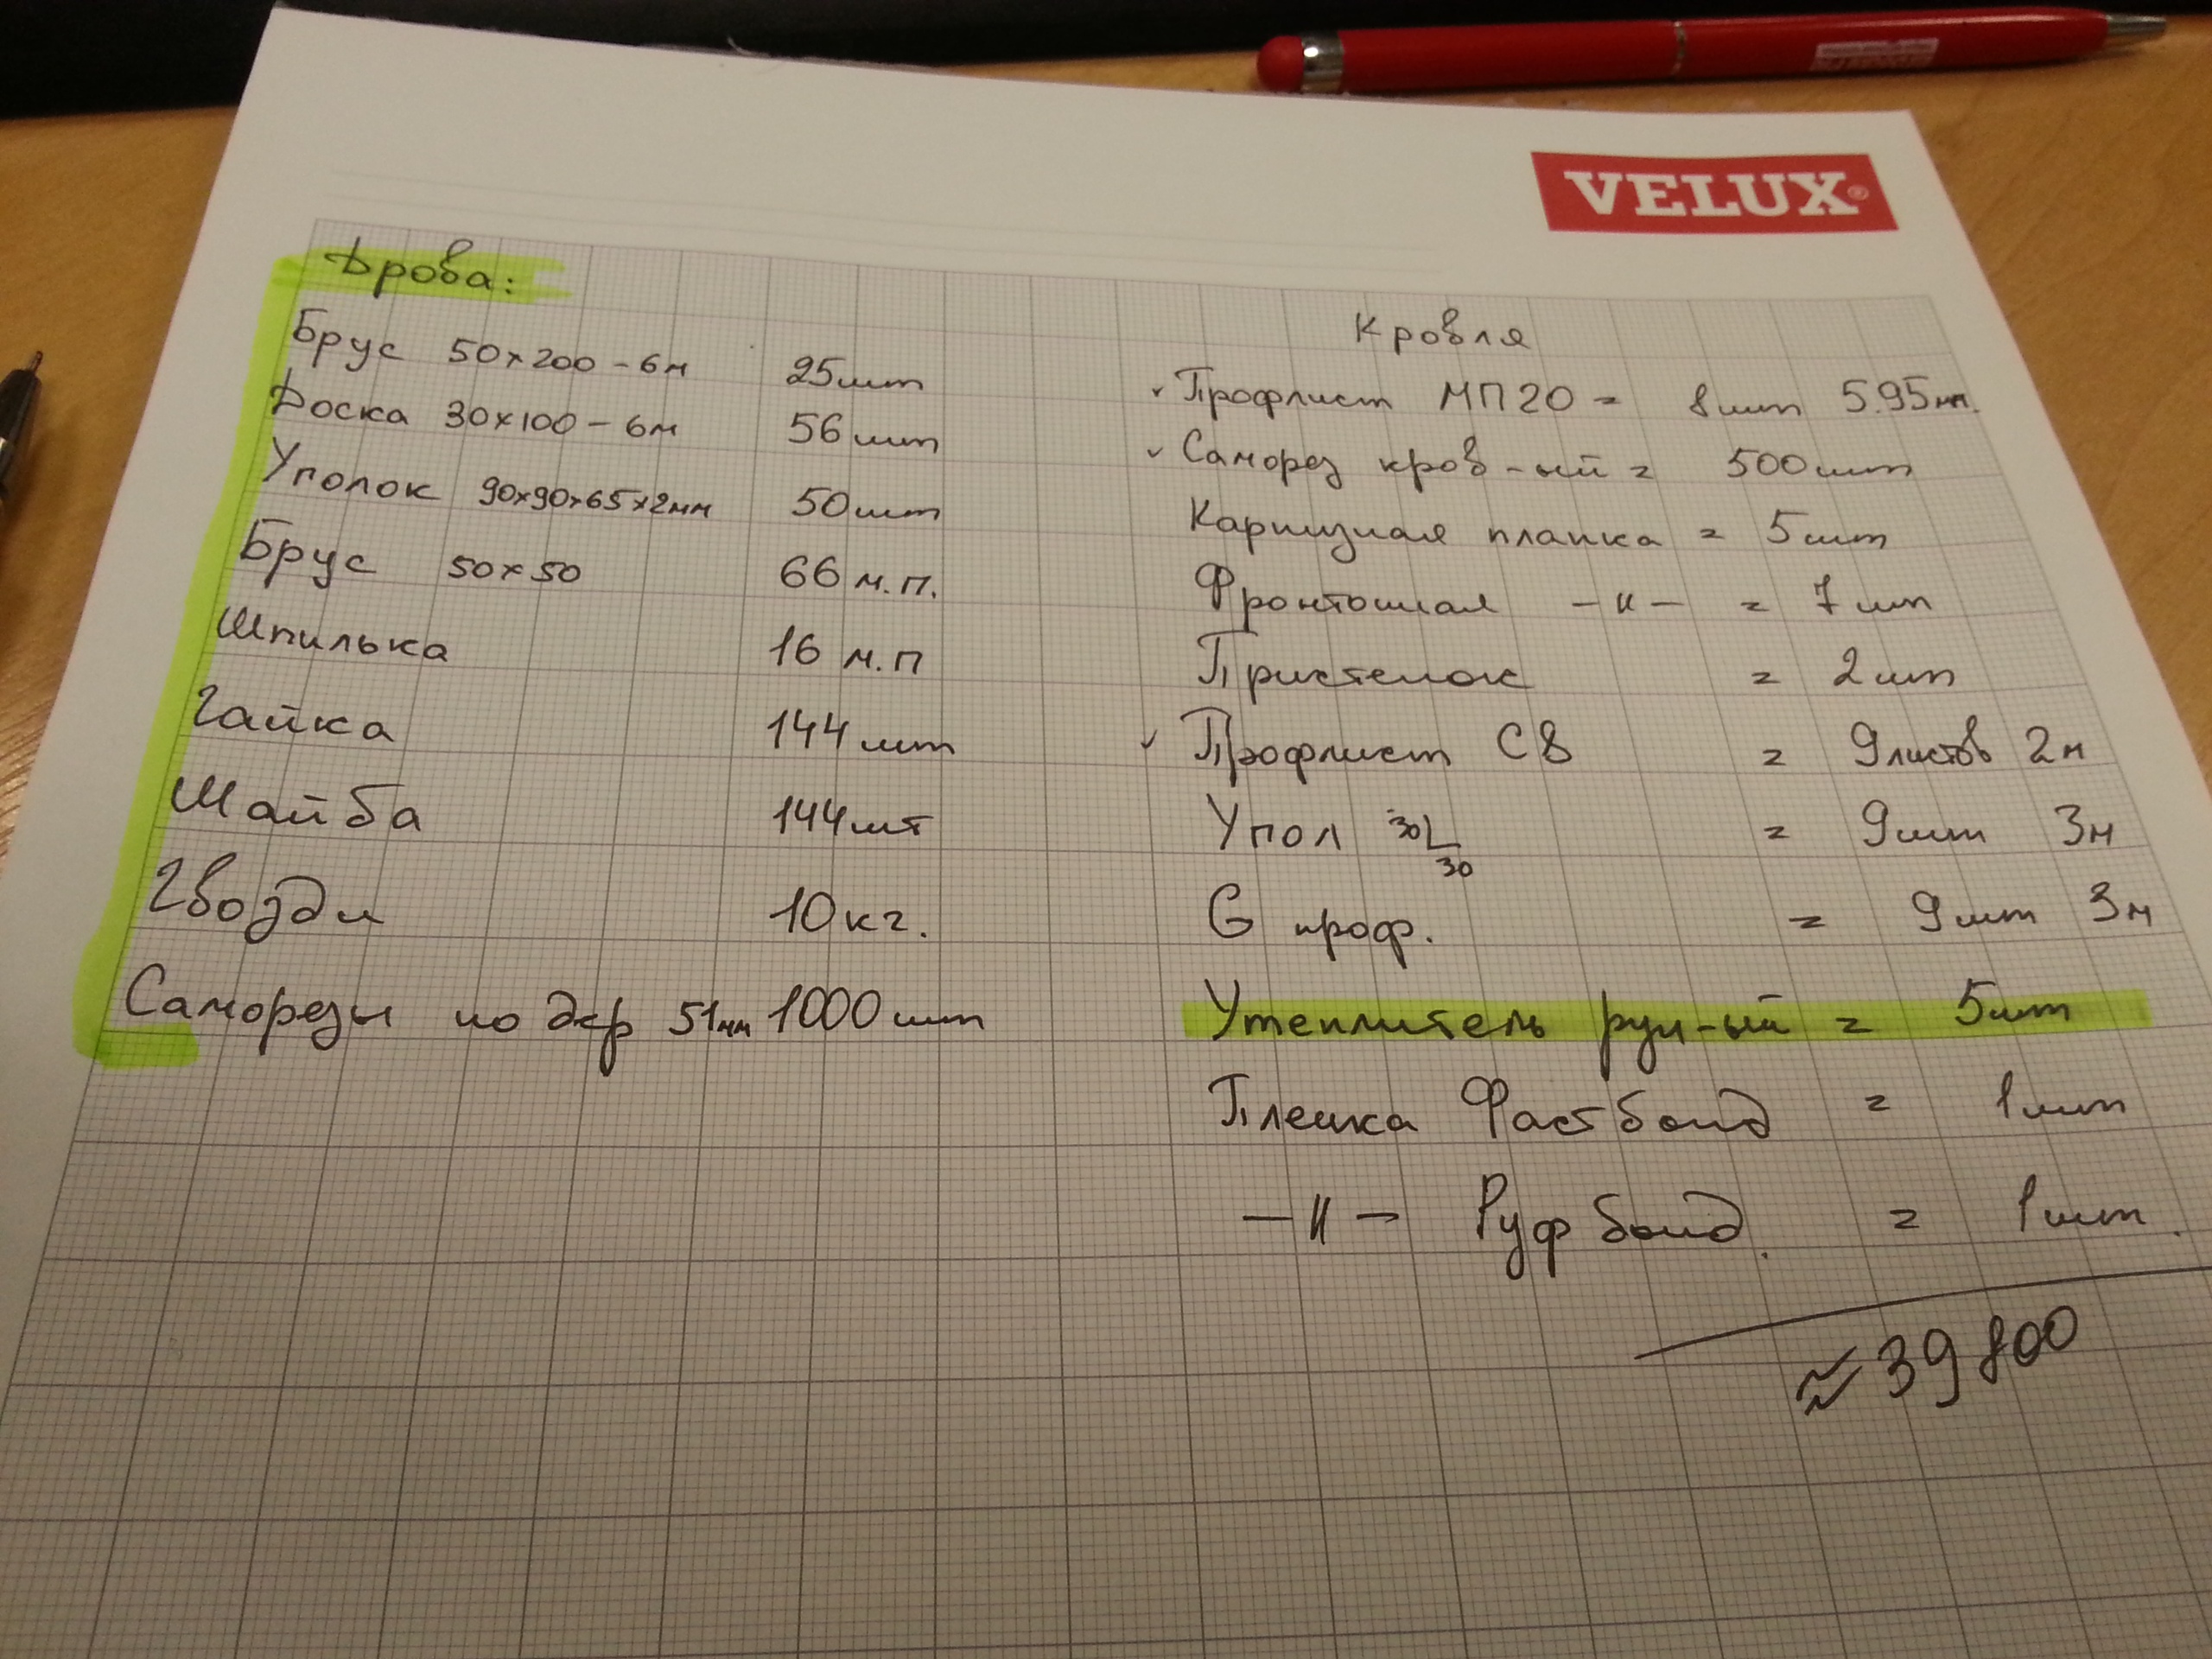 VELUX
Дрова:
Брус 50x200 - 6м 25шт
Доска 30x100 - 6м 56шт
Уголок 90x90x65x2мм 50шт
Брус 50x50 66 м.п.
Шпилька 16 м.п
Гайка 144шт
Шайба 144шт
Гвозди 10кг.
Саморезы по дер 51мм 1000шт
Кровля
✓ Профлист МП20 = 8шт 5.95мп.
✓ Саморез кров-ый = 500шт
Карнизная планка = 5шт
Фронтонная -"- = 7шт
Пристенок = 2шт
✓ Профлист С8 = 9листов 2м
Угол 30 30 = 9шт 3м
G проф. = 9шт 3м
Утеплитель рул-ый = 5шт
Пленка Фастбонд = 1шт
-"- Руфбонд. = 1шт.
≈ 39 800